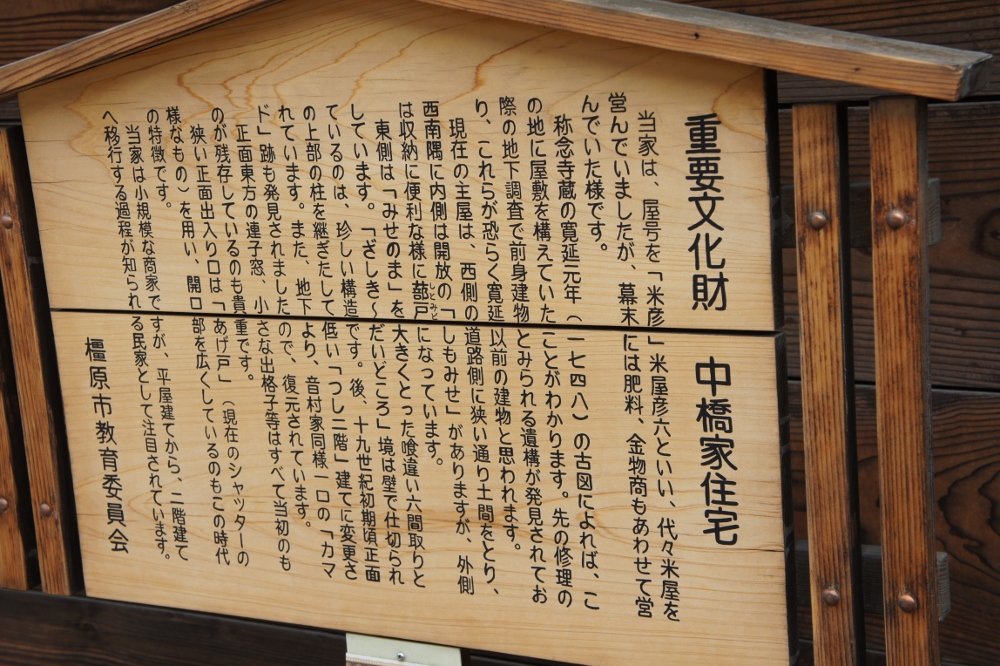 重要文化財　中橋家住宅
当家は、屋号を「米彦」米屋彦六といい、代々米屋を
営んでいましたが、幕末には肥料、金物商もあわせて営
んでいた様です。
称念寺蔵の寛延元年（一七四八）の古図によれば、こ
の地に屋敷を構えていたことがわかります。先の修理の
際の地下調査で前身建物とみられる遺構が発見されてお
り、これらが恐らく寛延以前の建物と思われます。
現在の主屋は、西側の道路側に狭い通り土間をとり、
西南隅に内側は開放の「しもみせ」がありますが、外側
は収納に便利な様に蔀戸になっています。
しとみど
東側は「みせのま」を大きくとった喰違い六間取りと
しています。「ざしき～だいどころ」境は壁で仕切られ
ているのは、珍しい構造です。後、十九世紀初期頃正面
の上部の柱を継ぎたして低い「つし二階」建てに変更さ
れています。また、地下より、音村家同様一口の「カマ
ド」跡も発見されましたので、復元されています。
正面東方の連子窓、小さな出格子等はすべて当初のも
のが残存しているのも貴重です。
狭い正面出入り口は「あげ戸」（現在のシャッターの
様なもの）を用い、開口部を広くしているのもこの時代
の特徴です。
当家は小規模な商家ですが、平屋建てから、二階建て
へ移行する過程が知られる民家として注目されています。
橿原市教育委員会